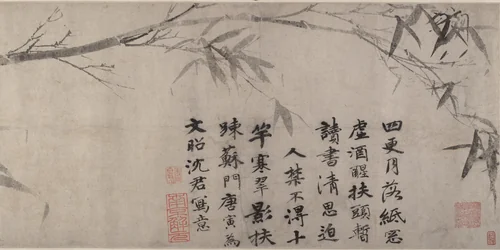 四更月落紙窓
虛酒醒扶頭暫
讀書清思迫
人禁不得十
竿寒翠影扶
踈蘇門唐寅為
文昭沈君寫意